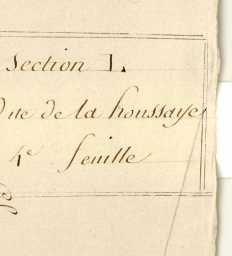 Section I.
dite de la houssaye
4e feuille